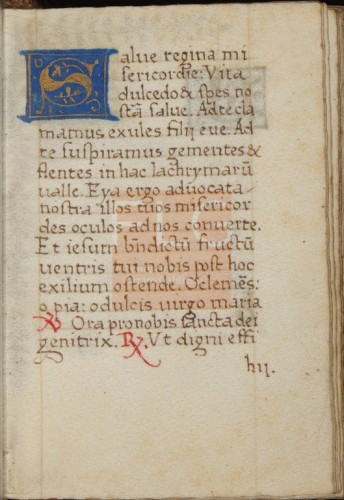 Salue regina mi
sericordie: Vita
dulcedo & spes no
stã salue. Ad te cla
mamus exules filij eue. Ad
te suspiramus gementes &
flentes in hac lachrymarũ
ualle. Eya ergo aduocata
nostra illos tuos misericor
des oculos ad nos conuerte.
Et iesum bñdictũ fructũ
uentris tui nobis post hoc
exilium ostende. O clemẽs:
o pia: o dulcis uirgo maria
℣. Ora pro nobis sancta dei
genitrix. ℟. Ut digni effi
h ij.